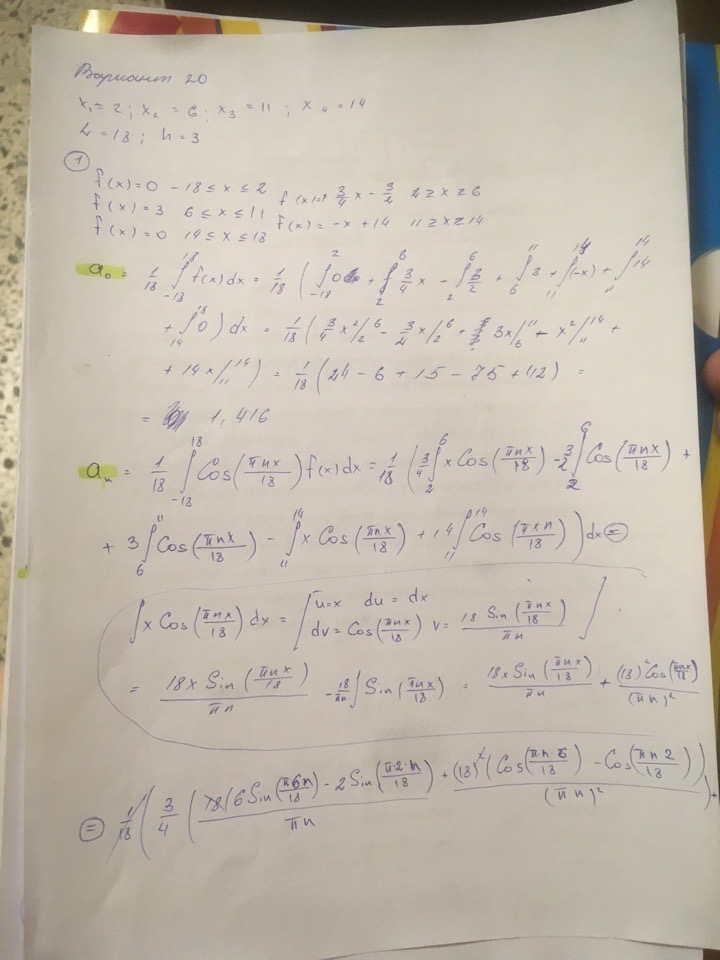 Вариант 20
x₁ = 2 ; x₂ = 6 ; x₃ = 11 ; x₄ = 14
L = 18 ; h = 3
① 
f(x) = 0 -18 ≤ x ≤ 2 f(x) = + 3/4 x - 3/2 2 ≥ x ≥ 6
f(x) = 3 6 ≤ x ≤ 11 f(x) = -x + 14 11 ≥ x ≥ 14
f(x) = 0 14 ≤ x ≤ 18
a₀ = 1/18 ∫₋₁₈¹⁸ f(x) dx = 1/18 ( ∫₋₁₈² 0 + ∫₂⁶ 3/4 x - ∫₂⁶ 3/2 + ∫₆¹¹ 3 + ∫₁₁¹⁴ (-x) + ∫₁₁¹⁴ 14
+ ∫₁₄¹⁸ 0 ) dx = 1/18 ( 3/4 x²/2 |₂⁶ - 3/2 x |₂⁶ + 3x |₆¹¹ - x²/2 |₁₁¹⁴ +
+ 14x |₁₁¹⁴ ) = 1/18 ( 24 - 6 + 15 - 75 + 42 ) =
= 1,416
aₙ = 1/18 ∫₋₁₈¹⁸ Cos(πnx/18) f(x) dx = 1/18 ( 3/4 ∫₂⁶ x Cos(πnx/18) - 3/2 ∫₂⁶ Cos(πnx/18) +
+ 3 ∫₆¹¹ Cos(πnx/18) - ∫₁₁¹⁴ x Cos(πnx/18) + 14 ∫₁₁¹⁴ Cos(πxn/18) ) dx =
∫ x Cos(πnx/18) dx = [ u = x du = dx
dv = Cos(πnx/18) v = 18 Sin(πnx/18)/πn ]
= 18x Sin(πnx/18)/πn - 18/πn ∫ Sin(πnx/18) = 18x Sin(πnx/18)/πn + (18)² Cos(πnx/18)/(πn)²
= 1/18 ( 3/4 ( 18(6 Sin(π6n/18) - 2 Sin(π·2·n/18))/πn + (18)² (Cos(π·n·6/18) - Cos(πn2/18))/(πn)² ) +